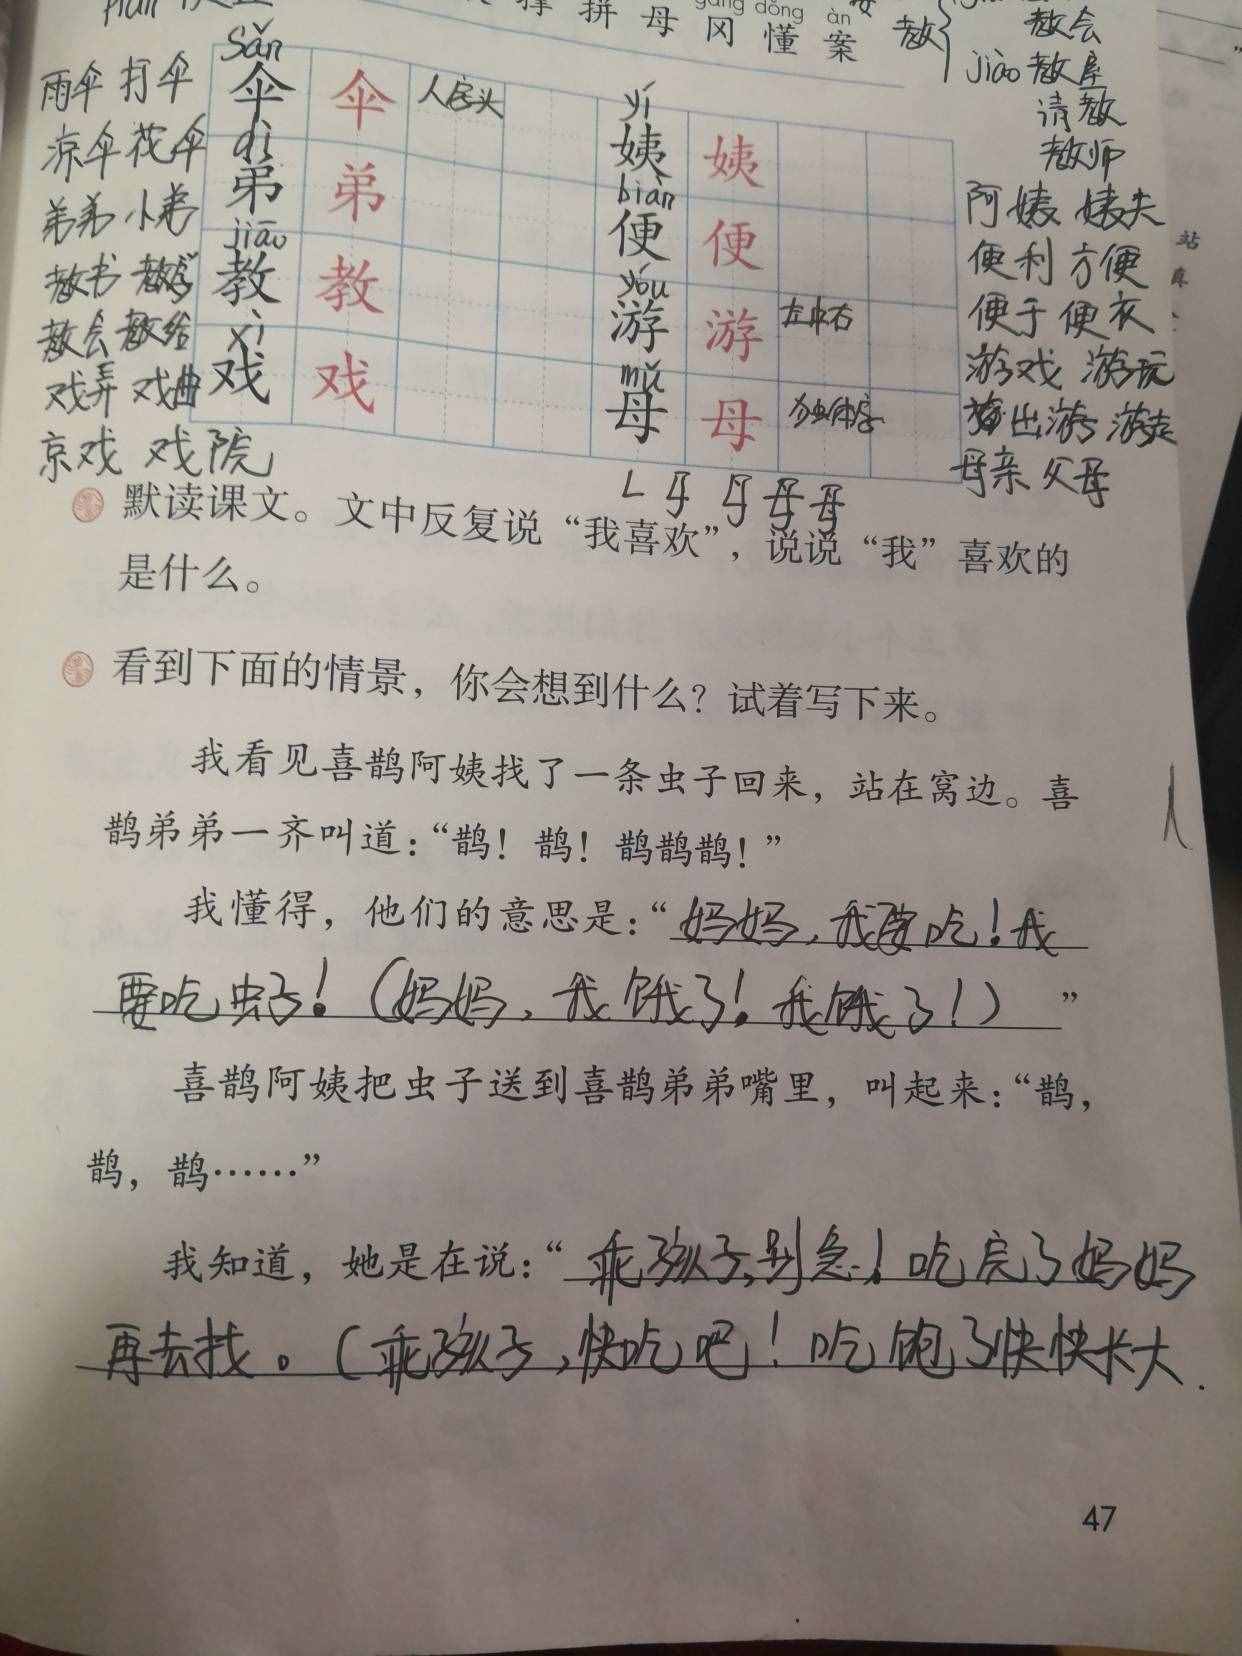 撑 拼 母 冈 懂 案
gāng dǒng àn
教
教会
jiào 教室
请教
教师
sǎn
雨伞 打伞 伞 伞 人字头
凉伞 花伞
dì
弟弟 小弟 弟 弟
jiāo
教书 教学 教 教
教会 教给
xì
戏弄 戏曲 戏 戏
京戏 戏院
yí
姨 姨
阿姨 姨夫
biàn
便 便
便利 方便
便于 便衣
yóu
游 游 左中右
游戏 游玩
出游 游走
mǔ
母 母 独体字
母亲 父母
默读课文。文中反复说“我喜欢”，说说“我”喜欢的
是什么。
看到下面的情景，你会想到什么？试着写下来。
我看见喜鹊阿姨找了一条虫子回来，站在窝边。喜
鹊弟弟一齐叫道：“鹊！鹊！鹊鹊鹊！”
我懂得，他们的意思是：“妈妈，我要吃！我
要吃虫子！（妈妈，我饿了！我饿了！）”
喜鹊阿姨把虫子送到喜鹊弟弟嘴里，叫起来：“鹊，
鹊，鹊……”
我知道，她是在说：“乖孩子，别急！吃完了妈妈
再去找。（乖孩子，快吃吧！吃饱了快快长大.
47